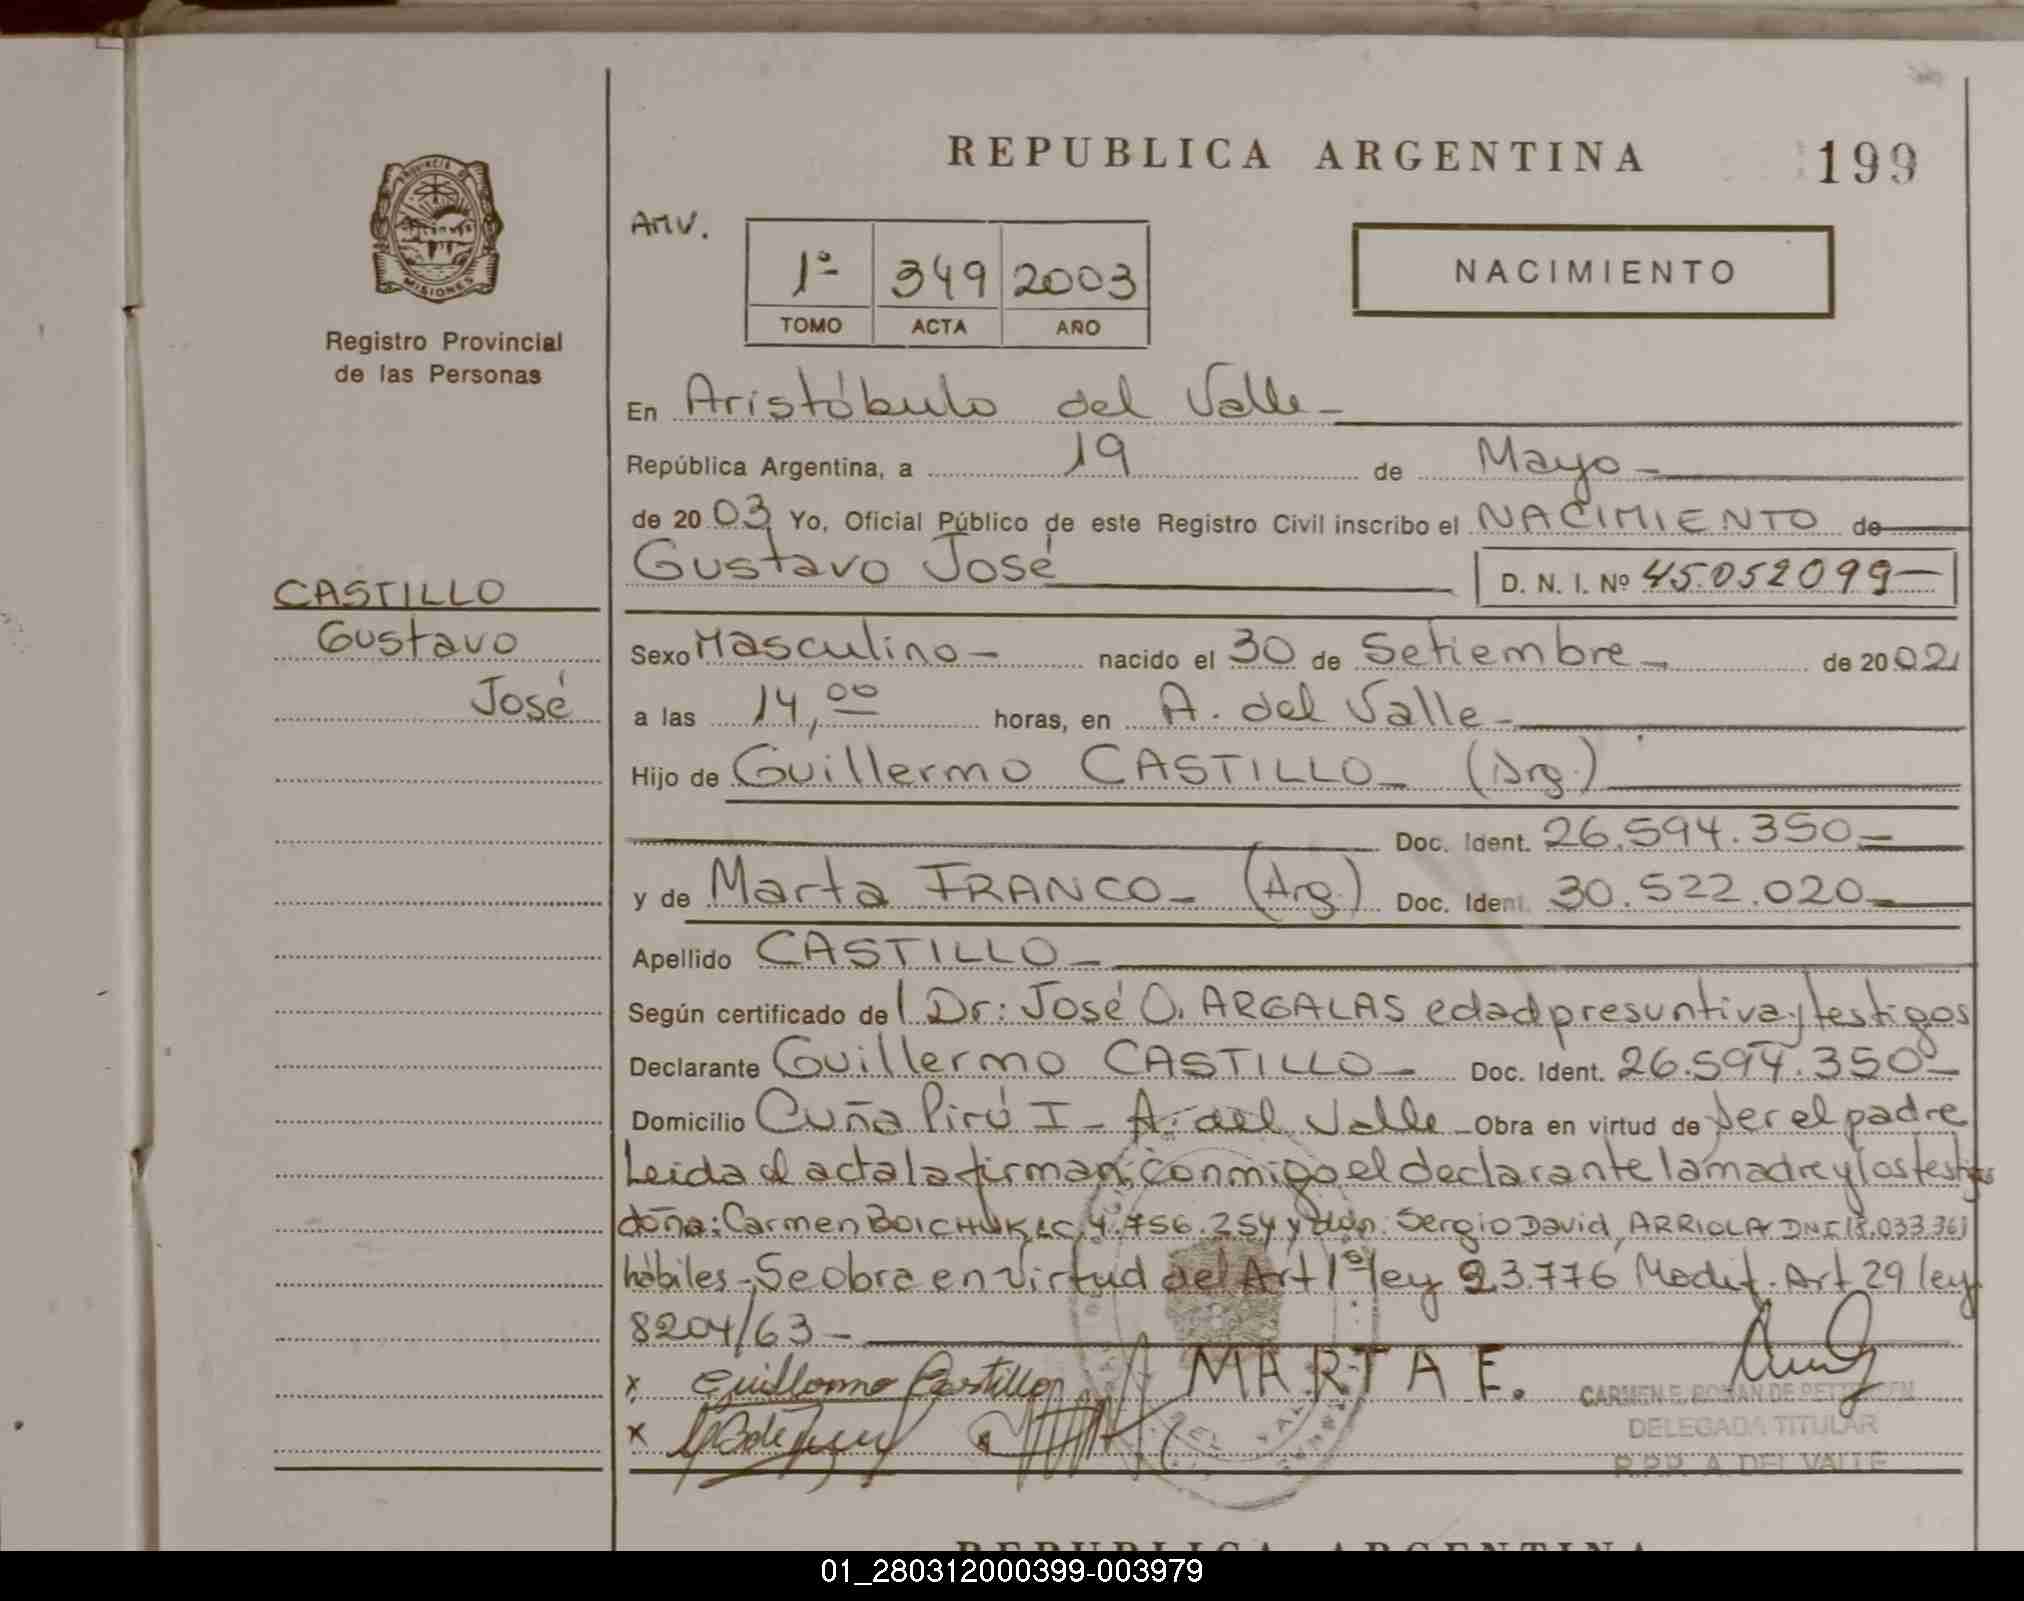 REPUBLICA ARGENTINA
199
PROVINCIA DE
MISIONES
Registro Provincial
de las Personas
AMV.
1º 349 2003
TOMO ACTA AÑO
NACIMIENTO
En Aristóbulo del Valle
República Argentina, a 19 de Mayo
de 2003 Yo, Oficial Público de este Registro Civil inscribo el NACIMIENTO de
Gustavo José D. N. I. Nº 45.052099
CASTILLO
Gustavo
José
Sexo Masculino nacido el 30 de Setiembre de 2002
a las 14,00 horas, en A. del Valle
Hijo de Guillermo CASTILLO (Arg.)
Doc. Ident. 26.594.350
y de Marta FRANCO (Arg.) Doc. Ident. 30.522.020
Apellido CASTILLO
Según certificado del Dr: José O. ARGALAS edad presuntiva y testigos
Declarante Guillermo CASTILLO Doc. Ident. 26.594.350
Domicilio Cuña Pirú I - A. del Valle Obra en virtud de ser el padre
Leida el acta la firman conmigo el declarante la madre y los testigos
doña: Carmen BOICHUK LC. 4.756.254 y don: Sergio David, ARRIOLA DNI 18.033.361
hábiles - Se obra en virtud del Art 1º ley 23.776 Modif. Art 29 ley
8204/63
x Guillermo Castillo MARTA F.
x
CARMEN E. ROMAN DE
DELEGADA TITULAR
R.P.P. A. DEL VALLE
REPUBLICA ARGENTINA
01_280312000399-003979